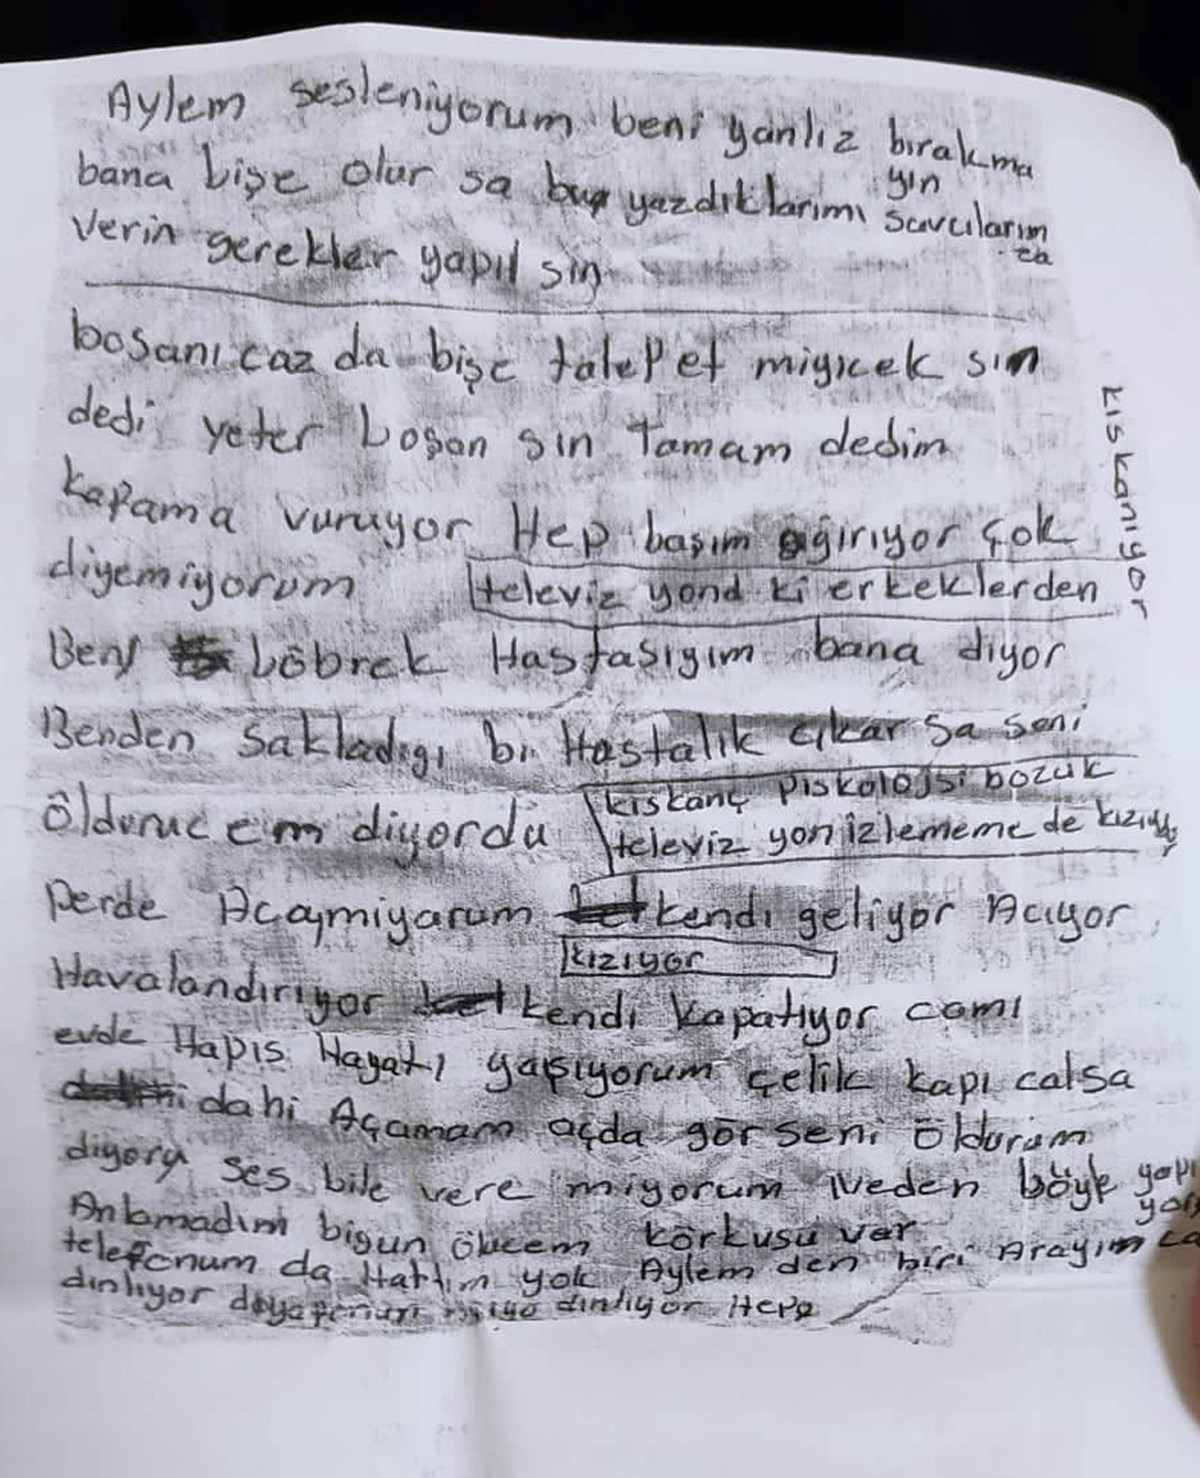 Aylem sesleniyorum beni yanlız bırakma
yın
bana bişe olur sa bu yazdıklarımı savcıların
za
verin gerekler yapıl sın
boşanıcaz da bişe talep et miyicek sin
dedi yeter boşan sın Tamam dedim
kafama vuruyor Hep başım ağırıyor çok
diyemiyorum
televiz yond ki erkeklerden
kıskanıyor
Ben böbrek Hastasıyım bana diyor
Benden sakladıgı bi Hastalık çıkar sa seni
öldürüc em diyordu
kıskanç piskolojsi bozuk
televiz yon izlememe de kızıyor
Perde Açaymiyarum kendi geliyor Açıyor
kızıyor
Havalandırıyor kendi kapatıyor camı
evde Hapis Hayatı yaşıyorum çelik kapı calsa
dahi Açamam açda gör seni öldürüm
diyory ses bile vere miyorum Neden böyle yapı
yor
Anlamadım bigun ölücem körkusu var
telefonum da Hattım yok Aylem den biri Arayım ca
dinliyor dinliyor Hepe